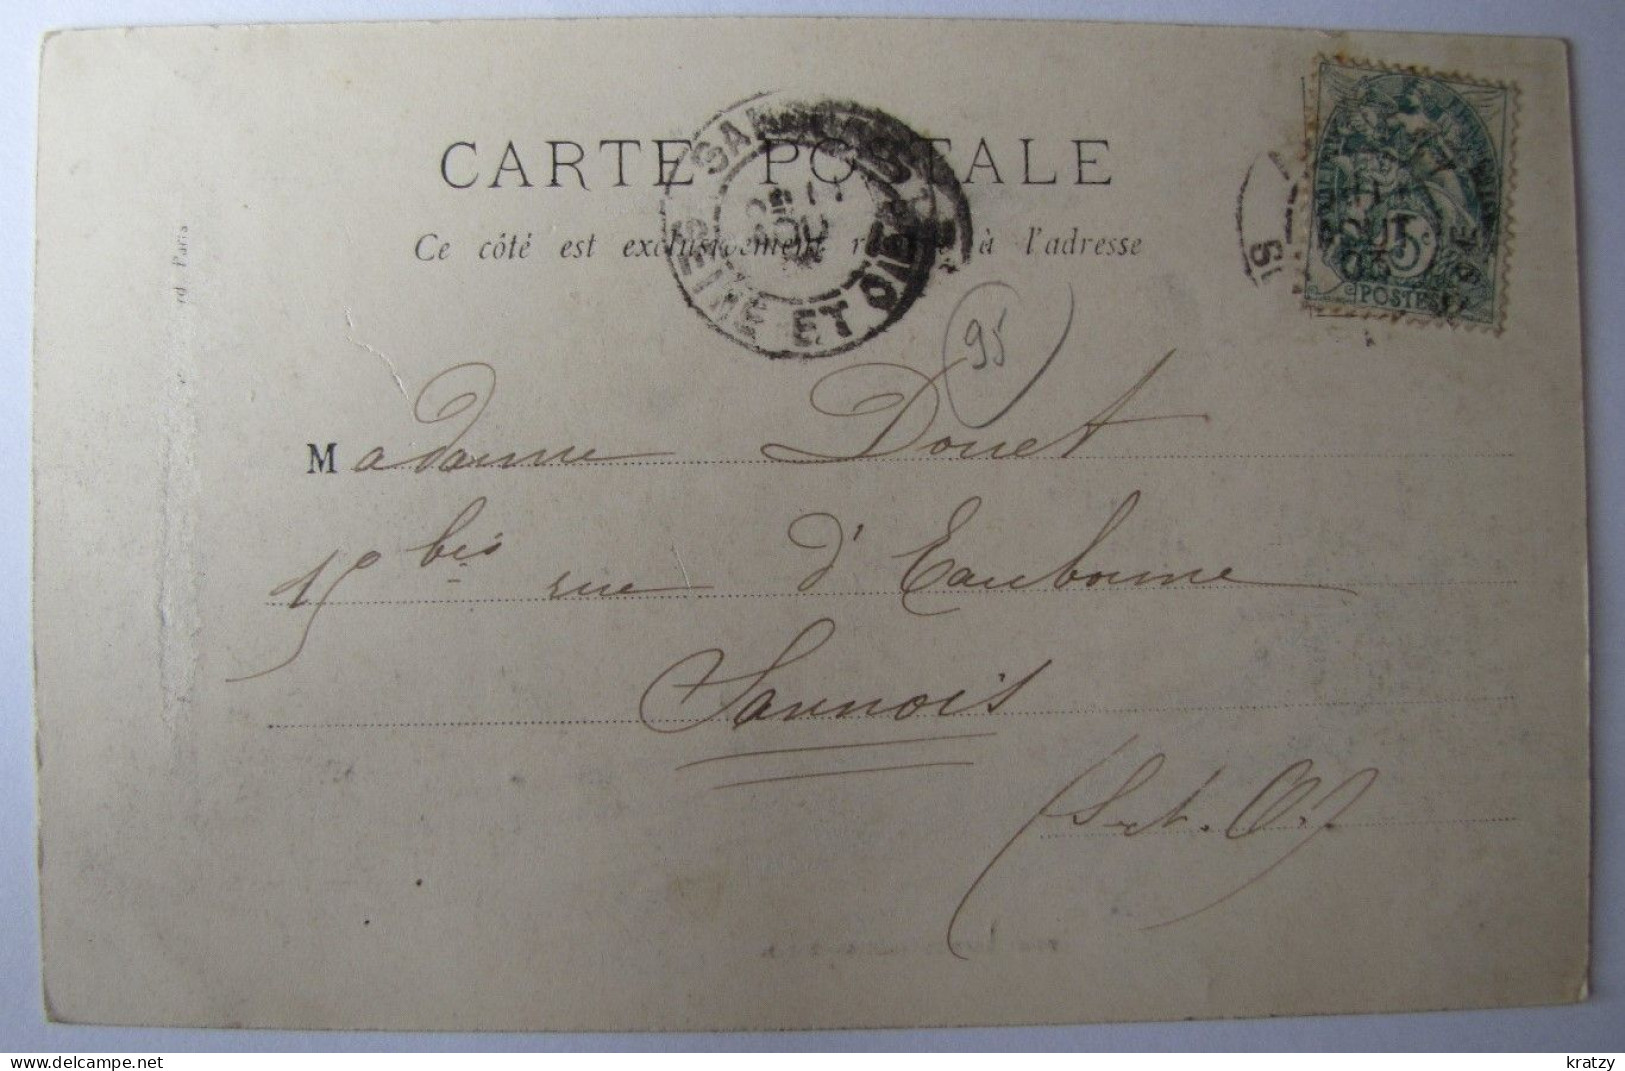 CARTE POSTALE
Ce côté est exclusivement réservé à l'adresse
SANNOIS
SEINE ET OISE
AOUT
03
5c
POSTES
95
Madame Douet
15 bis rue d'Eaubonne
Sannois
(S. et. O.)
rd Paris
kratzy